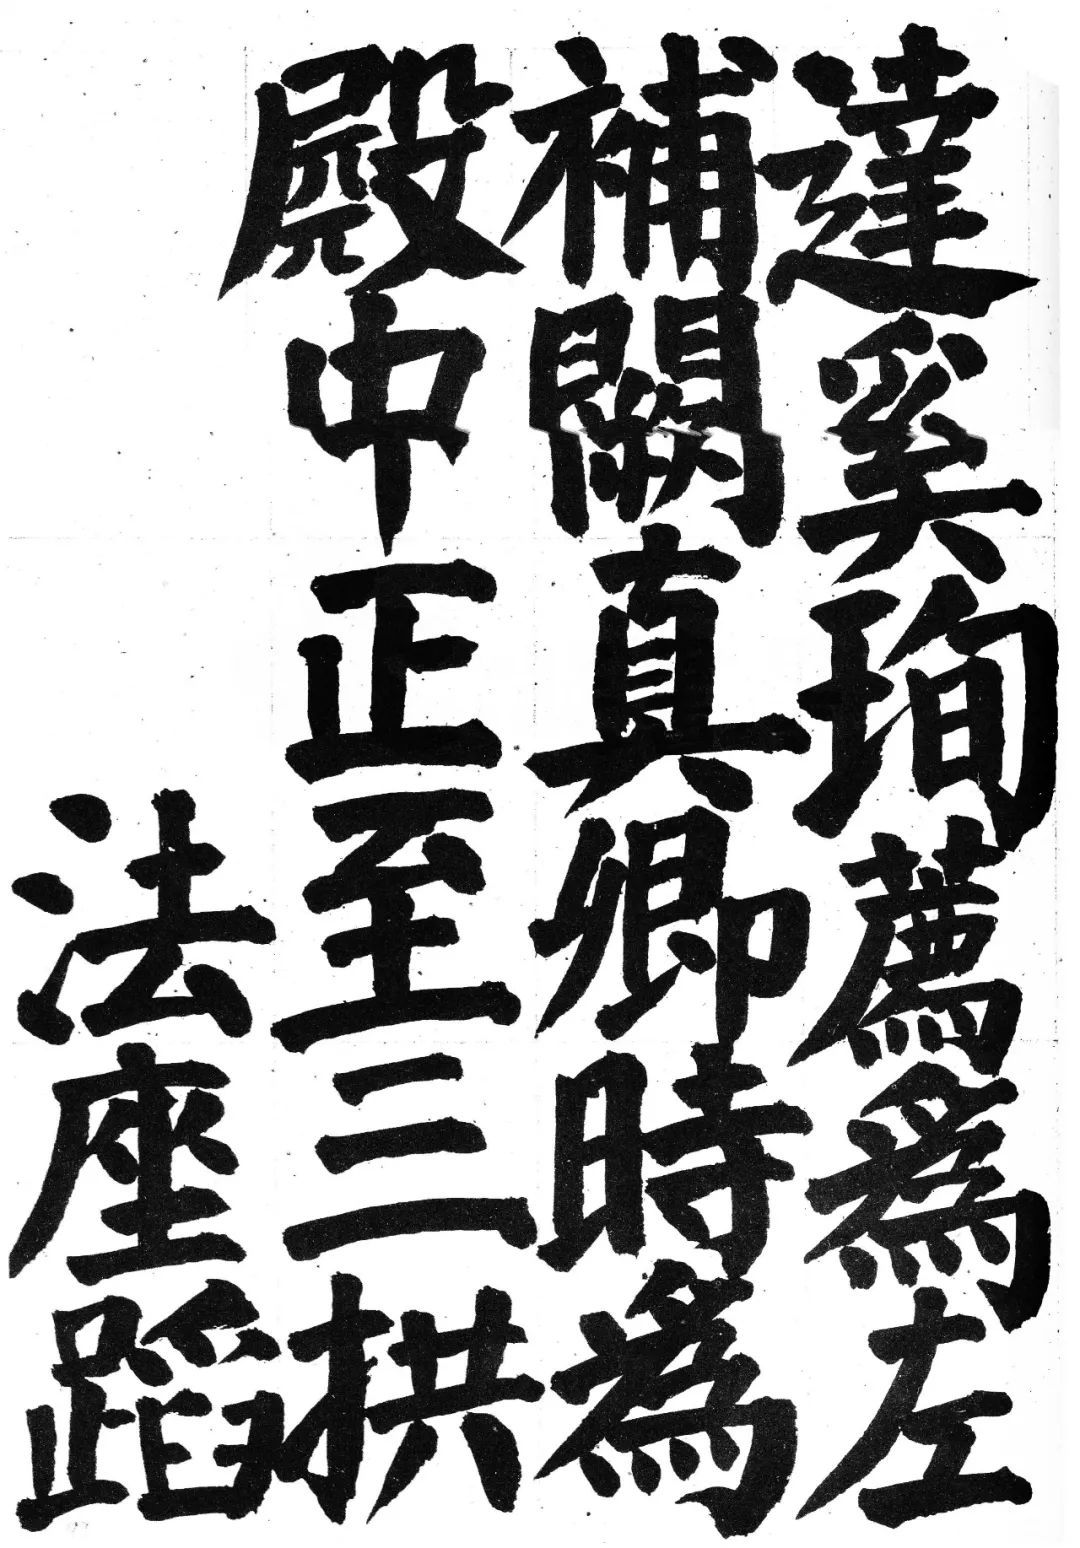 達奚珣薦爲左
補闕真卿時爲
殿中正至三拱
法座蹈